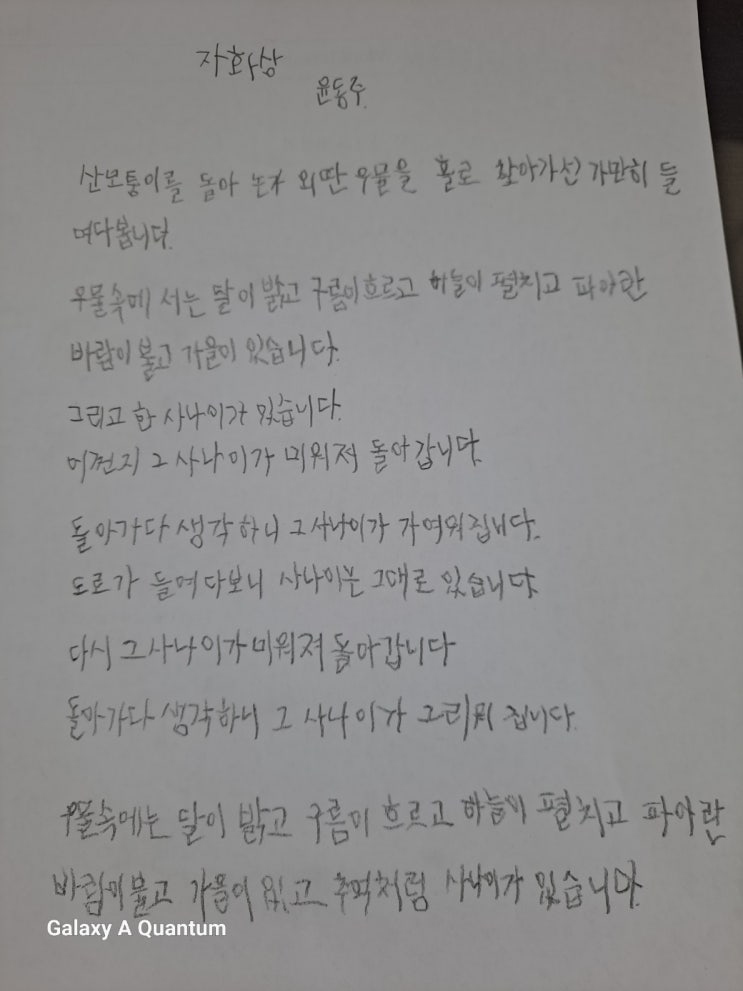 자화상
윤동주
산모퉁이를 돌아 논가 외딴 우물을 홀로 찾아가선 가만히 들
여다봅니다.
우물속에 서는 달이 밝고 구름이흐르고 하늘이 펼치고 파아란
바람이 불고 가을이 있습니다.
그리고 한 사나이가 있습니다.
어쩐지 그 사나이가 미워져 돌아갑니다.
돌아가다 생각하니 그사나이가 가여워집니다.
도로가 들여다보니 사나이는 그대로 있습니다
다시 그사나이가미워져 돌아갑니다
돌아가다 생각하니 그 사나이가 그리워 집니다.
우물속에는 달이 밝고 구름이 흐르고 하늘이 펼치고 파아란
바람이불고 가을이 있고 추억처럼 사나이가 있습니다.
Galaxy A Quantum